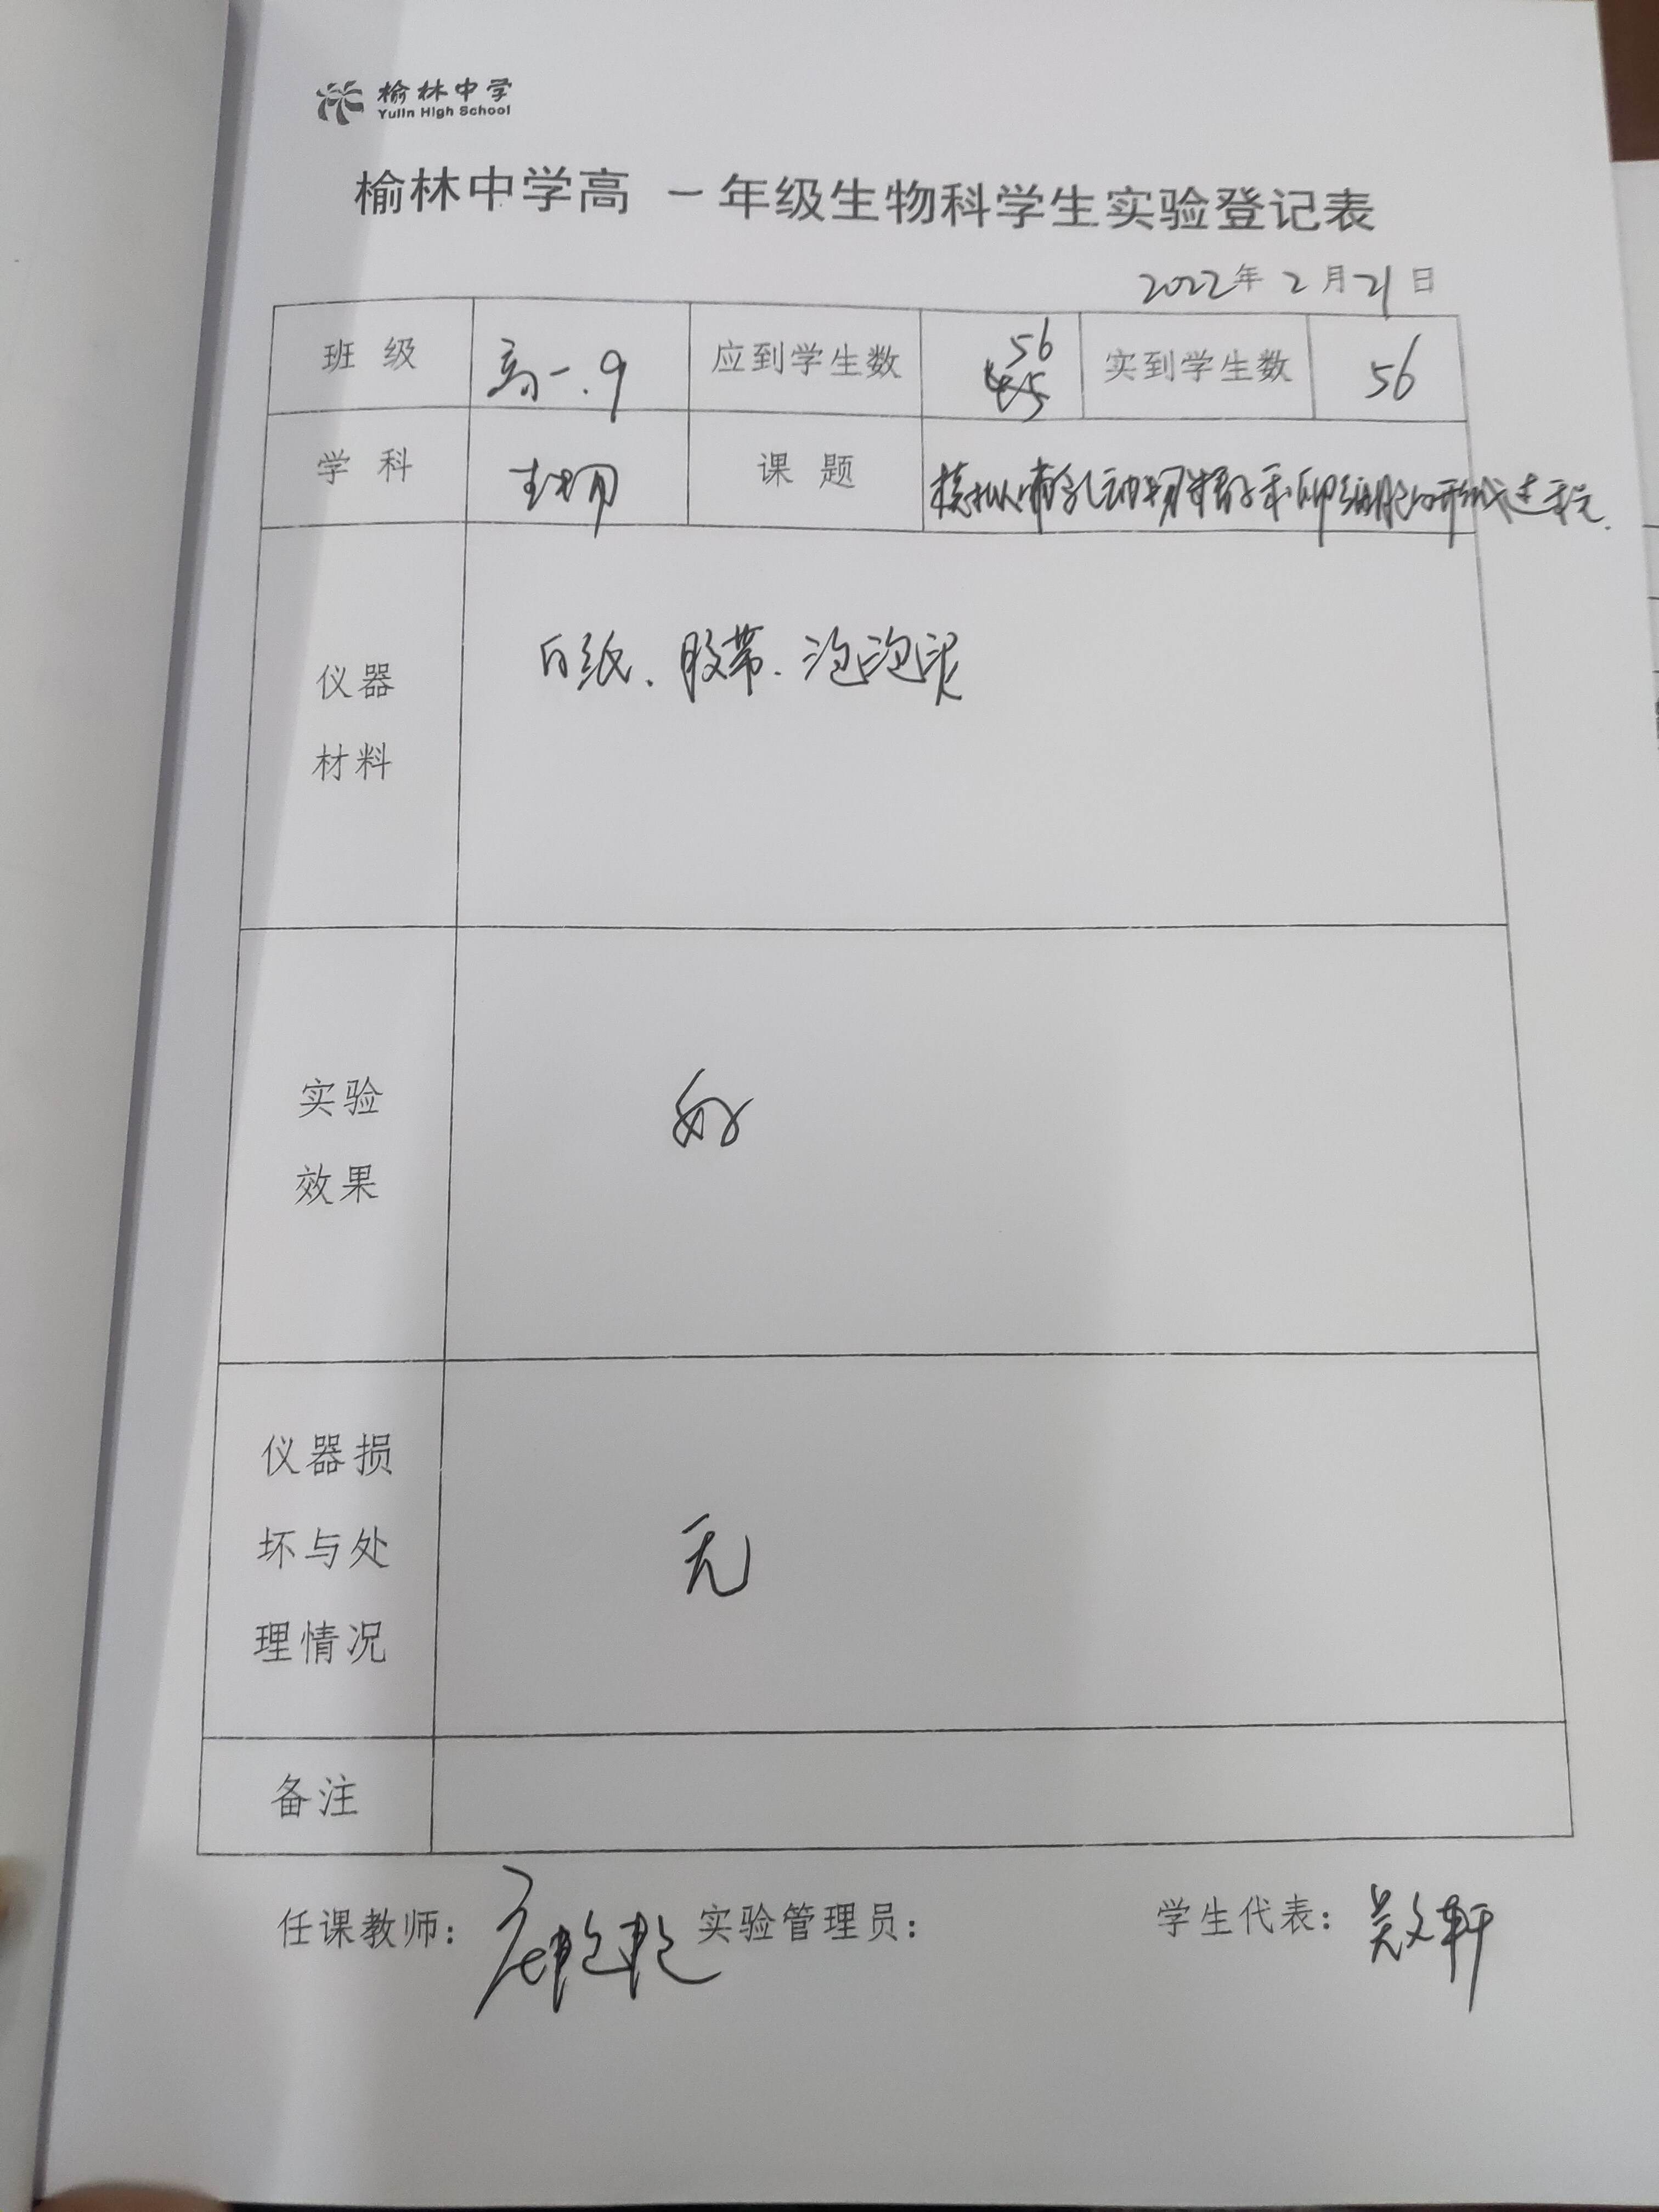 榆林中学
Yulin High School
榆林中学高 一年级生物科学生实验登记表
2022年 2 月 21 日
班 级 高一.9 应到学生数 56 实到学生数 56
学 科 生物 课 题 模拟哺乳动物精子和卵细胞的形成过程.
仪器
材料
白纸、胶带、泡泡泥
实验
效果
好
仪器损
坏与处
理情况
无
备注
任课教师: 实验管理员: 学生代表: 吴文轩